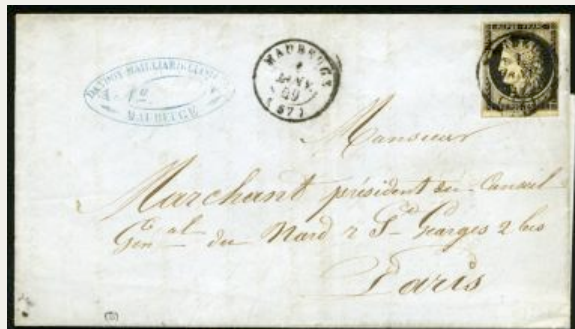 MAUBEUGE
MAUBEUGE
1
JANV.
49
(57)
REPUB. FRANC.
Monsieur
Marchant président du Conseil
Gén^al du Nord r St Georges 2 bis
Paris